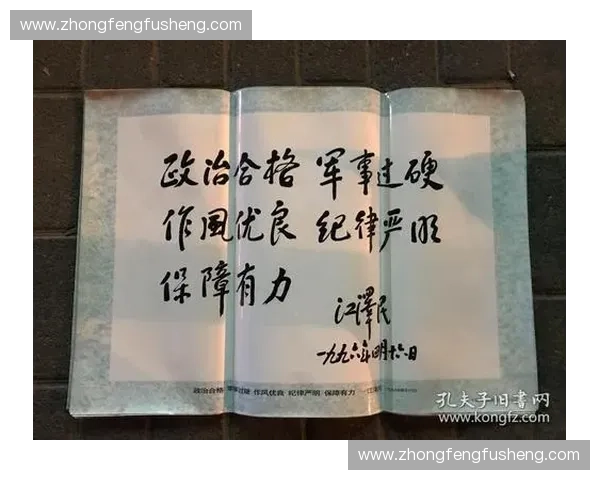 www.zhongfengfusheng.com
政治合格 军事过硬
作风优良 纪律严明
保障有力
江泽民
一九九六年四月十六日
政治合格 军事过硬 作风优良 纪律严明 保障有力
孔夫子旧书网
www.kongfz.com
www.zhongfengfusheng.com